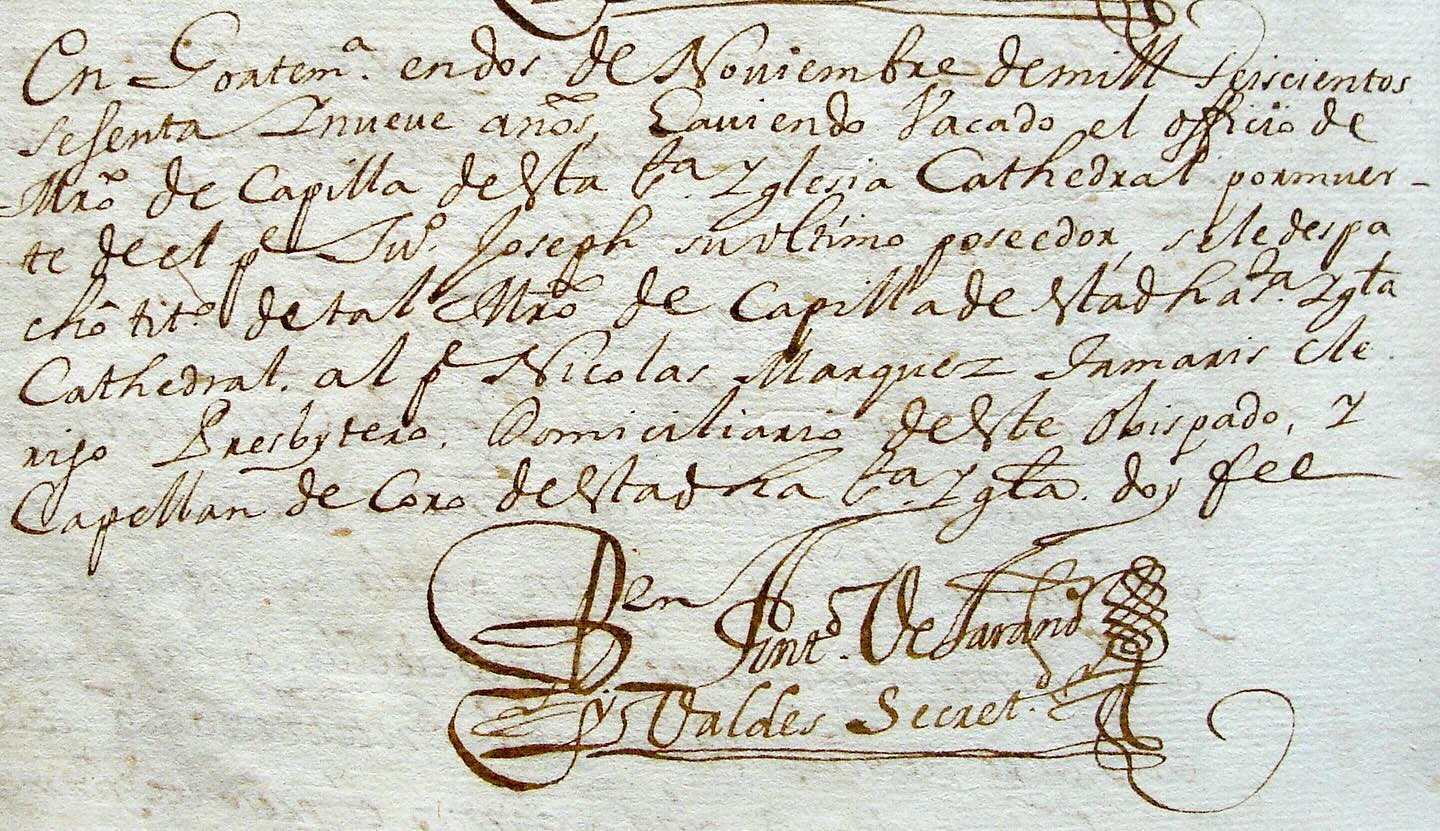 En Goatem.ª endos de Nouiembre demill seiscientos
sesenta Inueue años, Hauiendo Vacado el officio de
Mrō de Capilla desta S.ta Yglesia Cathedral pormuer-
te de el p.e Ju.º Joseph su vltimo poseedor, se le despa
chó tit.º de tal Mrō de Capilla de esta dha S.ta Ygła
Cathedral. al p.e Nicolas Marquez Tamaris cle
rigo Presbytero, Domiciliario deste Obispado, y
Capellan de Coro desta dha S.ta Ygła. doy fee
Ben
y Valdes Secret.º